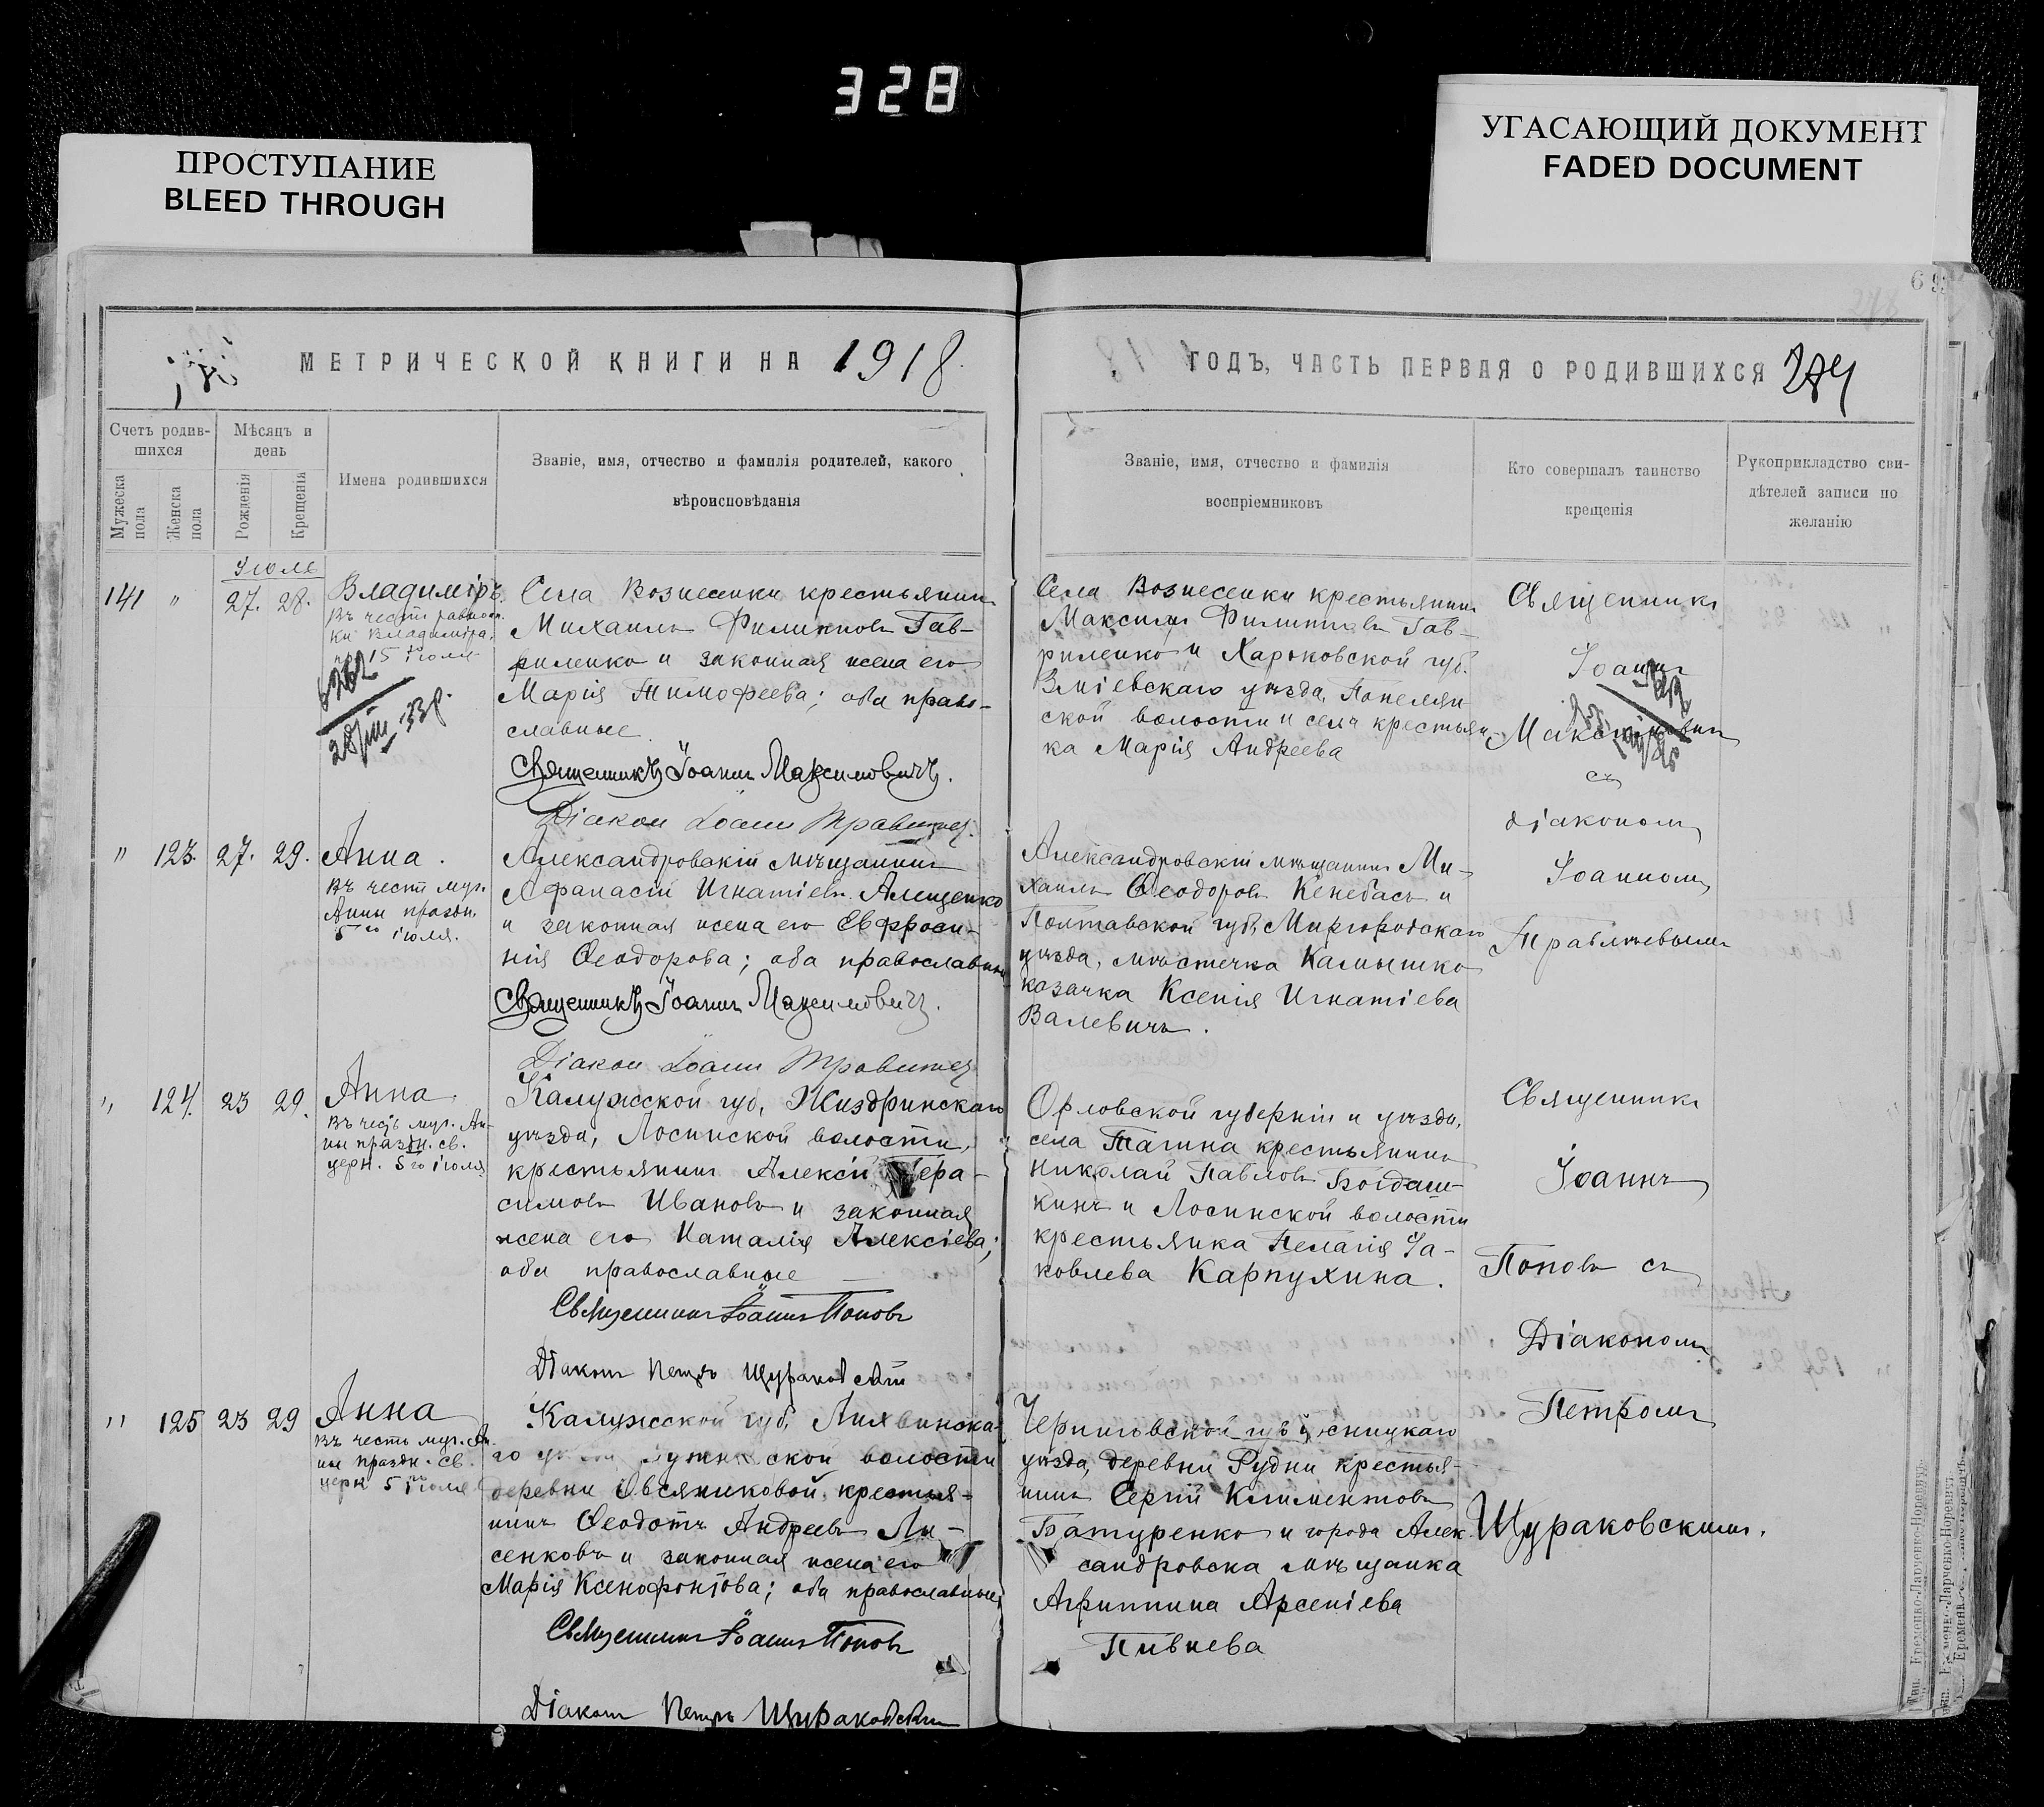 328
ПРОСТУПАНИЕ
BLEED THROUGH
УГАСАЮЩИЙ ДОКУМЕНТ
FADED DOCUMENT
69
МЕТРИЧЕСКОЙ КНИГИ НА 1918
ГОДЪ, ЧАСТЬ ПЕРВАЯ О РОДИВШИХСЯ 274
Счетъ родив-
шихся
Мужеска пола
Женска пола
Мѣсяцъ и
день
Рожденія
Крещенія
Имена родившихся
Званіе, имя, отчество и фамилія родителей, какого
вѣроисповѣданія
Званіе, имя, отчество и фамилія
воспріемниковъ
Кто совершалъ таинство
крещенія
Рукоприкладство сви-
дѣтелей записи по
желанію
Іюль
141 " 27. 28.
Владиміръ.
Въ честь равноап.
кн Владиміра,
15 іюля
28/III-33р.
Села Вознесенки крестьянинъ
Михаилъ Филипповъ Гав-
риленко и законная жена его
Марія Тимофеева; оба право-
славные
Священникъ Іоаннъ Максимовичъ.
Діаконъ Іоаннъ Травлѣевъ
Села Вознесенки крестьянинъ
Максимъ Филипповъ Гав-
риленко и Харьковской губ.
Зміевскаго уѣзда,
ской волости и села крестьян-
ка Марія Андреева
Священникъ
Іоаннъ
Максимовичъ
съ
діакономъ
Іоанномъ
Травлѣевымъ
" 123. 27. 29.
Анна.
Въ честь муч.
Анны праздн.
5го іюля.
Александровскій мѣщанинъ
Афанасій Игнатіевъ Алещенко
и законная жена его Евфроси-
нія Ѳеодорова; оба православные
Священникъ Іоаннъ Максимовичъ.
Діаконъ Іоаннъ Травлѣевъ
Александровскій мѣщанинъ Ми-
хаилъ Ѳеодоровъ Кенебасъ и
Полтавской губ, Миргородскаго
уѣзда, мѣстечка Камышко
козачка Ксенія Игнатіева
Валевичъ.
" 124. 23 29.
Анна.
Въ честь муч. Ан-
ны праздн. св.
церк. 5го іюля
Калужской губ, Жиздринскаго
уѣзда, Лосинской волости,
крестьянинъ Алексій Гера-
симовъ Ивановъ и законная
жена его Наталія Алексіева;
оба православные
Священникъ Іоаннъ Поповъ
Діаконъ Петръ Щураковскій
Орловской губерніи и уѣзда,
села Тагина крестьянинъ
Николай Павловъ Богдаш-
кинъ и Лосинской волости
крестьянка Пелагія Іа-
ковлева Карпухина.
Священникъ
Іоаннъ
Поповъ съ
Діакономъ
Петромъ
Щураковскимъ.
" 125 23 29
Анна
Въ честь муч. Ан-
ны праздн. св.
церк 5го іюля
Калужской губ, Лихвинска-
го ской волости
деревни Овсяниковой крестья-
нинъ Ѳеодотъ Андреевъ Ли-
сенковъ и законная жена его
Марія Ксенофонтова; оба православные
Священникъ Іоаннъ Поповъ
Діаконъ Петръ Щураковскій
Черниговской губ
уѣзда, деревни Рудни крестья-
нинъ Сергій Климентовъ
Батуренко и города Алек-
сандровска мѣщанка
Агриппина Арсеніева
Пивнева